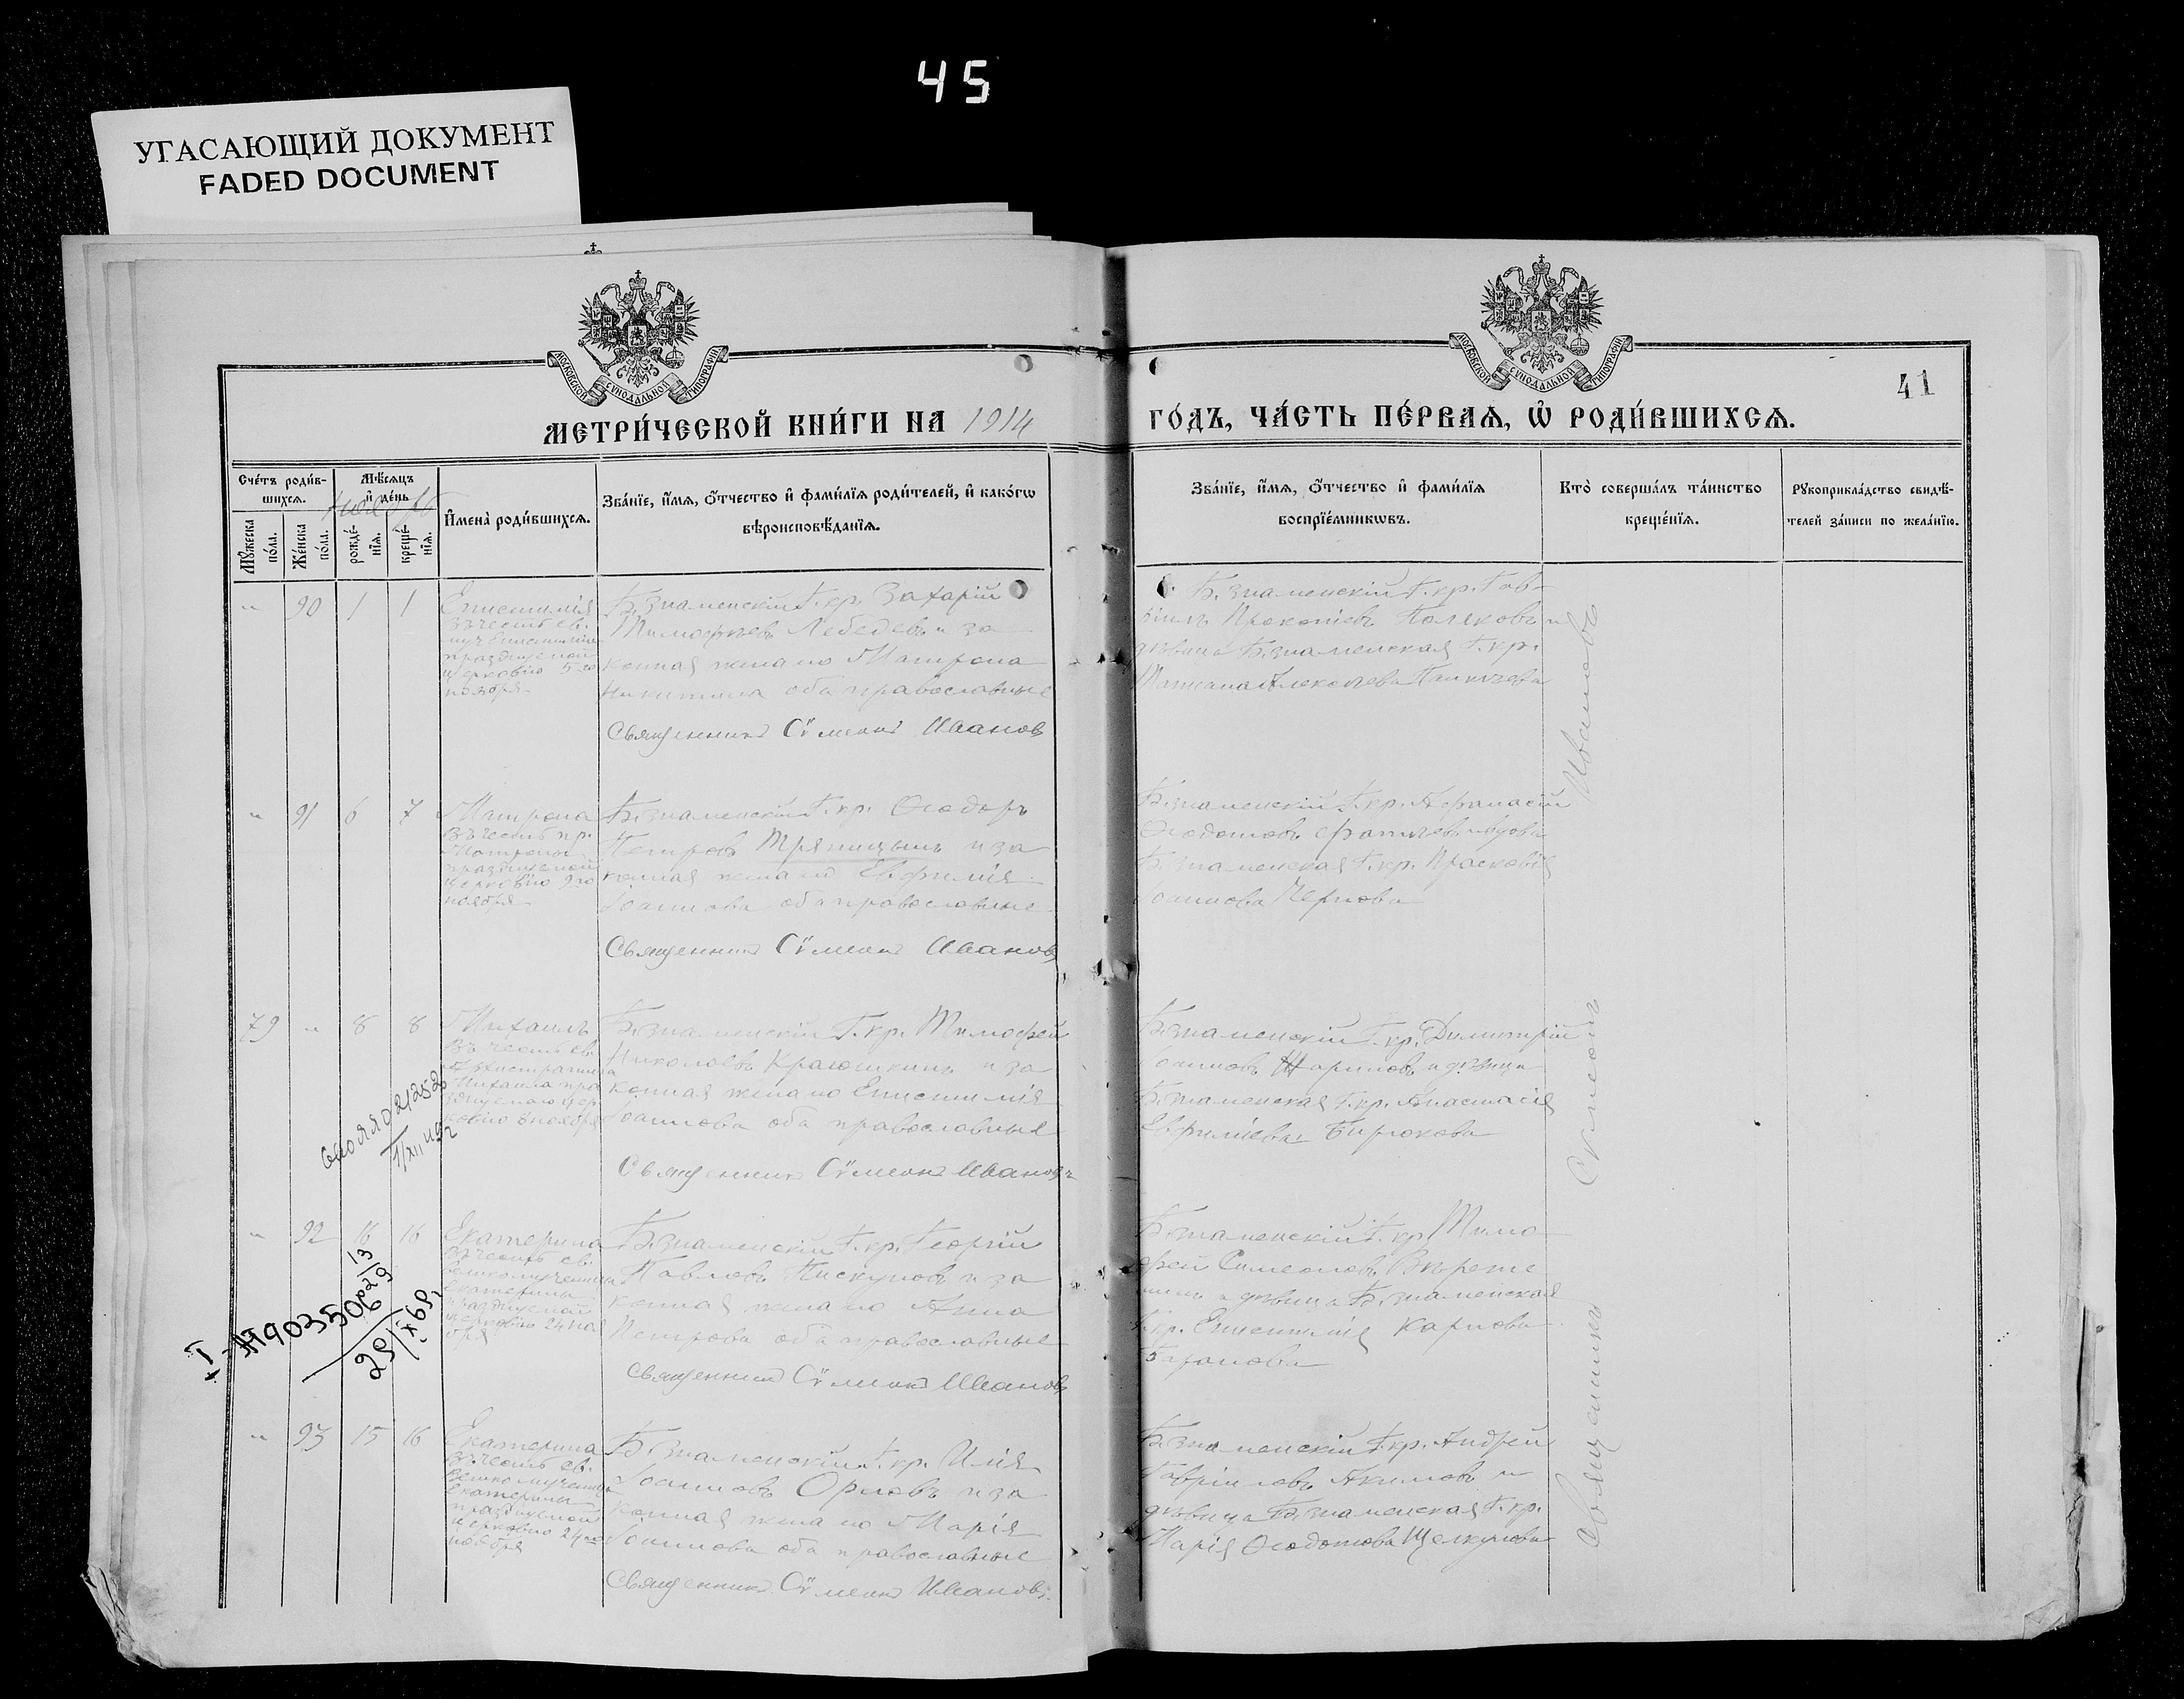 45
УГАСАЮЩИЙ ДОКУМЕНТ
FADED DOCUMENT
МОСКОВСКОЙ СѴНОДАЛЬНОЙ ТИПОГРАФІИ
МОСКОВСКОЙ СѴНОДАЛЬНОЙ ТИПОГРАФІИ
41
МЕТРИ́ЧЕСКОЙ КНИ́ГИ НА 1914
ГО́ДЪ, ЧА́СТЬ ПЕ́РВАЯ, Ѡ҆ РОДИ́ВШИХСЯ.
Сче́тъ роди́в-
шихся.
Мꙋ́жеска по́ла.
Же́нска по́ла.
Мѣ́сяцъ
и҆ де́нь
ноябрь
рожде́-
нїя.
креще́-
нїя.
И҆мена̀ роди́вшихся.
Зва́нїе, и҆́мя, ѻ҆́тчество и҆ фами́лїя роди́телей, и҆ како́гѡ
вѣроисповѣ́данїя.
Зва́нїе, и҆́мя, ѻ҆́тчество и҆ фами́лїя
воспрїе́мникѡвъ.
Кто̀ соверша́лъ та́инство
креще́нїя.
Рꙋкоприкла́дство свидѣ́-
телей за́писи по жела́нїю.
„ 90 1 1
Епистимія
въ честь св.
муч. Епистиміи
празднуемой
церковію 5-го
ноября
Б. Знаменскій Г. кр. Захарій
Тимофѣевъ Лебедевъ и за
конная жена его Матрона
Никитина оба православные
Священникъ Сѵмеонъ Иванов
Б. Знаменскій Г. кр. Гав-
ріилъ Прокопіевъ Поляковъ и
дѣвица Б. Знаменская Г. кр.
Татіана Алексѣева
„ 91 6 7
Матрона
въ честь пр.
Матроны
празднуемой
церковію 9-го
ноября
Б. Знаменскій Г. кр. Ѳеодоръ
Петровъ Тряпицынъ и за
конная жена его Евфимія
Іоаннова оба православные
Священникъ Сѵмеонъ Иванов
Б. Знаменскій Г. кр. Афанасій
Ѳедотовъ и вдова
Б. Знаменская Г. кр. Праскевія
Іоаннова Чернова
79 „ 8 8
Михаилъ
въ честь св.
Архистратига
Михаила пра
зднуемаго цер
ковію 8 ноября
Б. Знаменскій Г. кр. Тимофей
Николаевъ Краюшкинъ и за
конная жена его Епистимія
Іоаннова оба православные
Священникъ Сѵмеонъ Ивановъ
Б. Знаменскій Г. кр. Димитрій
Іоанновъ Шариповъ и дѣвица
Б. Знаменская Г. кр. Анастасія
Евфиміева Бирюкова
„ 92 16 16
Екатерина
въ честь св.
великомученицы
Екатерины
празднуемой
церковію 24 но
ября
Б. Знаменскій Г. кр. Георгій
Павловъ Пискуновъ и за
конная жена его Анна
Петрова оба православные
Священникъ Сѵмеонъ Иванов
Б. Знаменскій Г. кр. Тимо
фей Симеоновъ Верете
и дѣвица Б. Знаменская
Г. кр. Епистимія Карпова
I-ЯР 903350
29/IX 69
„ 93 15 16
Екатерина
въ честь св.
великомученицы
Екатерины
празднуемой
церковію 24-го
ноября
Б. Знаменскій Г. кр. Илія
Іоанновъ Орловъ и за
конная жена его Марія
Іоаннова оба православные
Священникъ Сѵмеонъ Иванов
Б. Знаменскій Г. кр. Андрей
Гавріиловъ Акимовъ и
дѣвица Б. Знаменская Г. кр.
Марія Ѳеодотова Щелкунова
Священникъ Сѵмеонъ Ивановъ